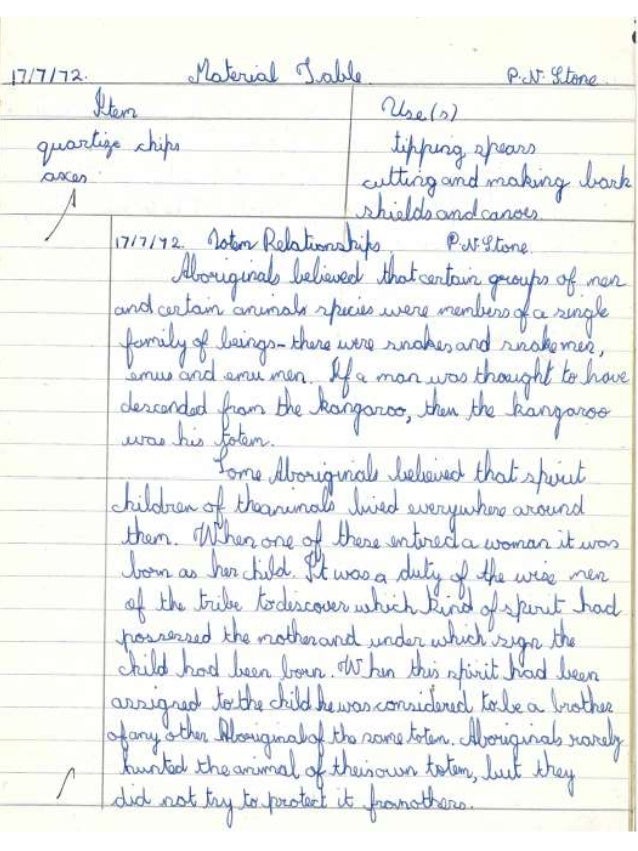 17/7/72. Material Table P.N. Stone.
Item Use(s)
quartize chips tipping spears
axes cutting and making bark
shields and canoes
17/7/72. Totem Relationships. P.N Stone.
Aboriginals believed that certain groups of men
and certain animals species were members of a single
family of beings - there were snakes and snake men,
emus and emu men. If a man was thought to have
descended from the kangaroo, then the kangaroo
was his totem.
Some Aboriginals believed that spirit
children of the animals lived everywhere around
them. When one of these entired a woman it was
born as her child. It was a duty of the wise men
of the tribe to discover which kind of spirit had
possessed the mother and under which sign the
child had been born. When this spirit had been
assigned to the child he was considered to be a brother
of any other Aboriginal of the same totem. Aboriginals rarely
hunted the animal of their own totem, but they
did not try to protect it from others.